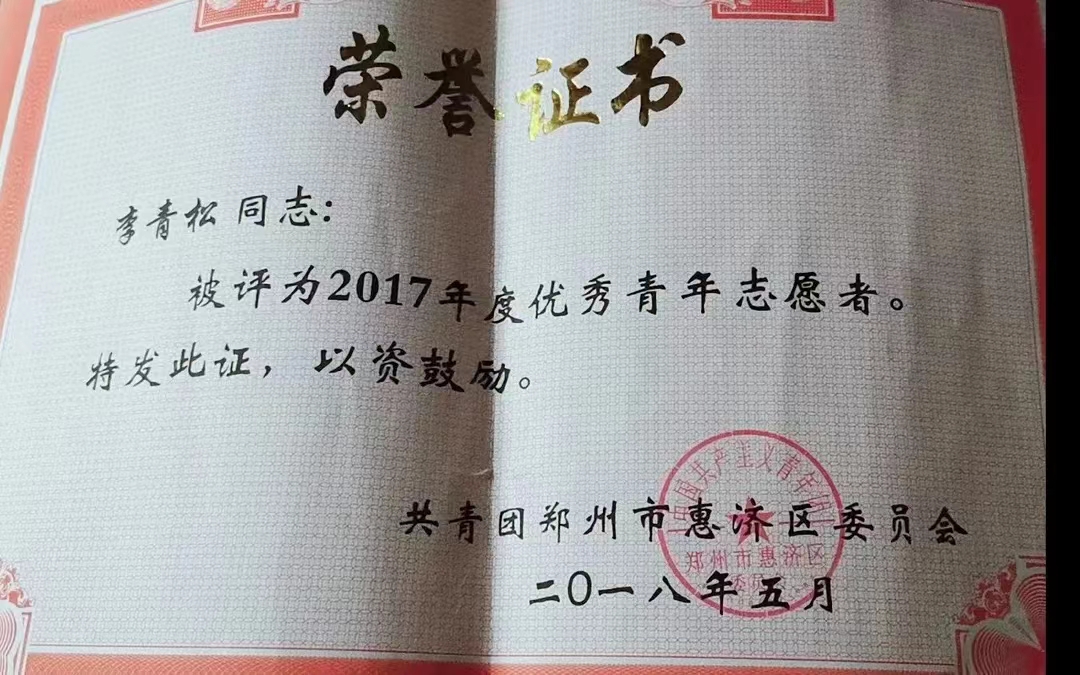 荣誉证书
李青松同志：
被评为2017年度优秀青年志愿者。
特发此证，以资鼓励。
共青团郑州市惠济区委员会
二〇一八年五月
国共产主义青年团
郑州市惠济区